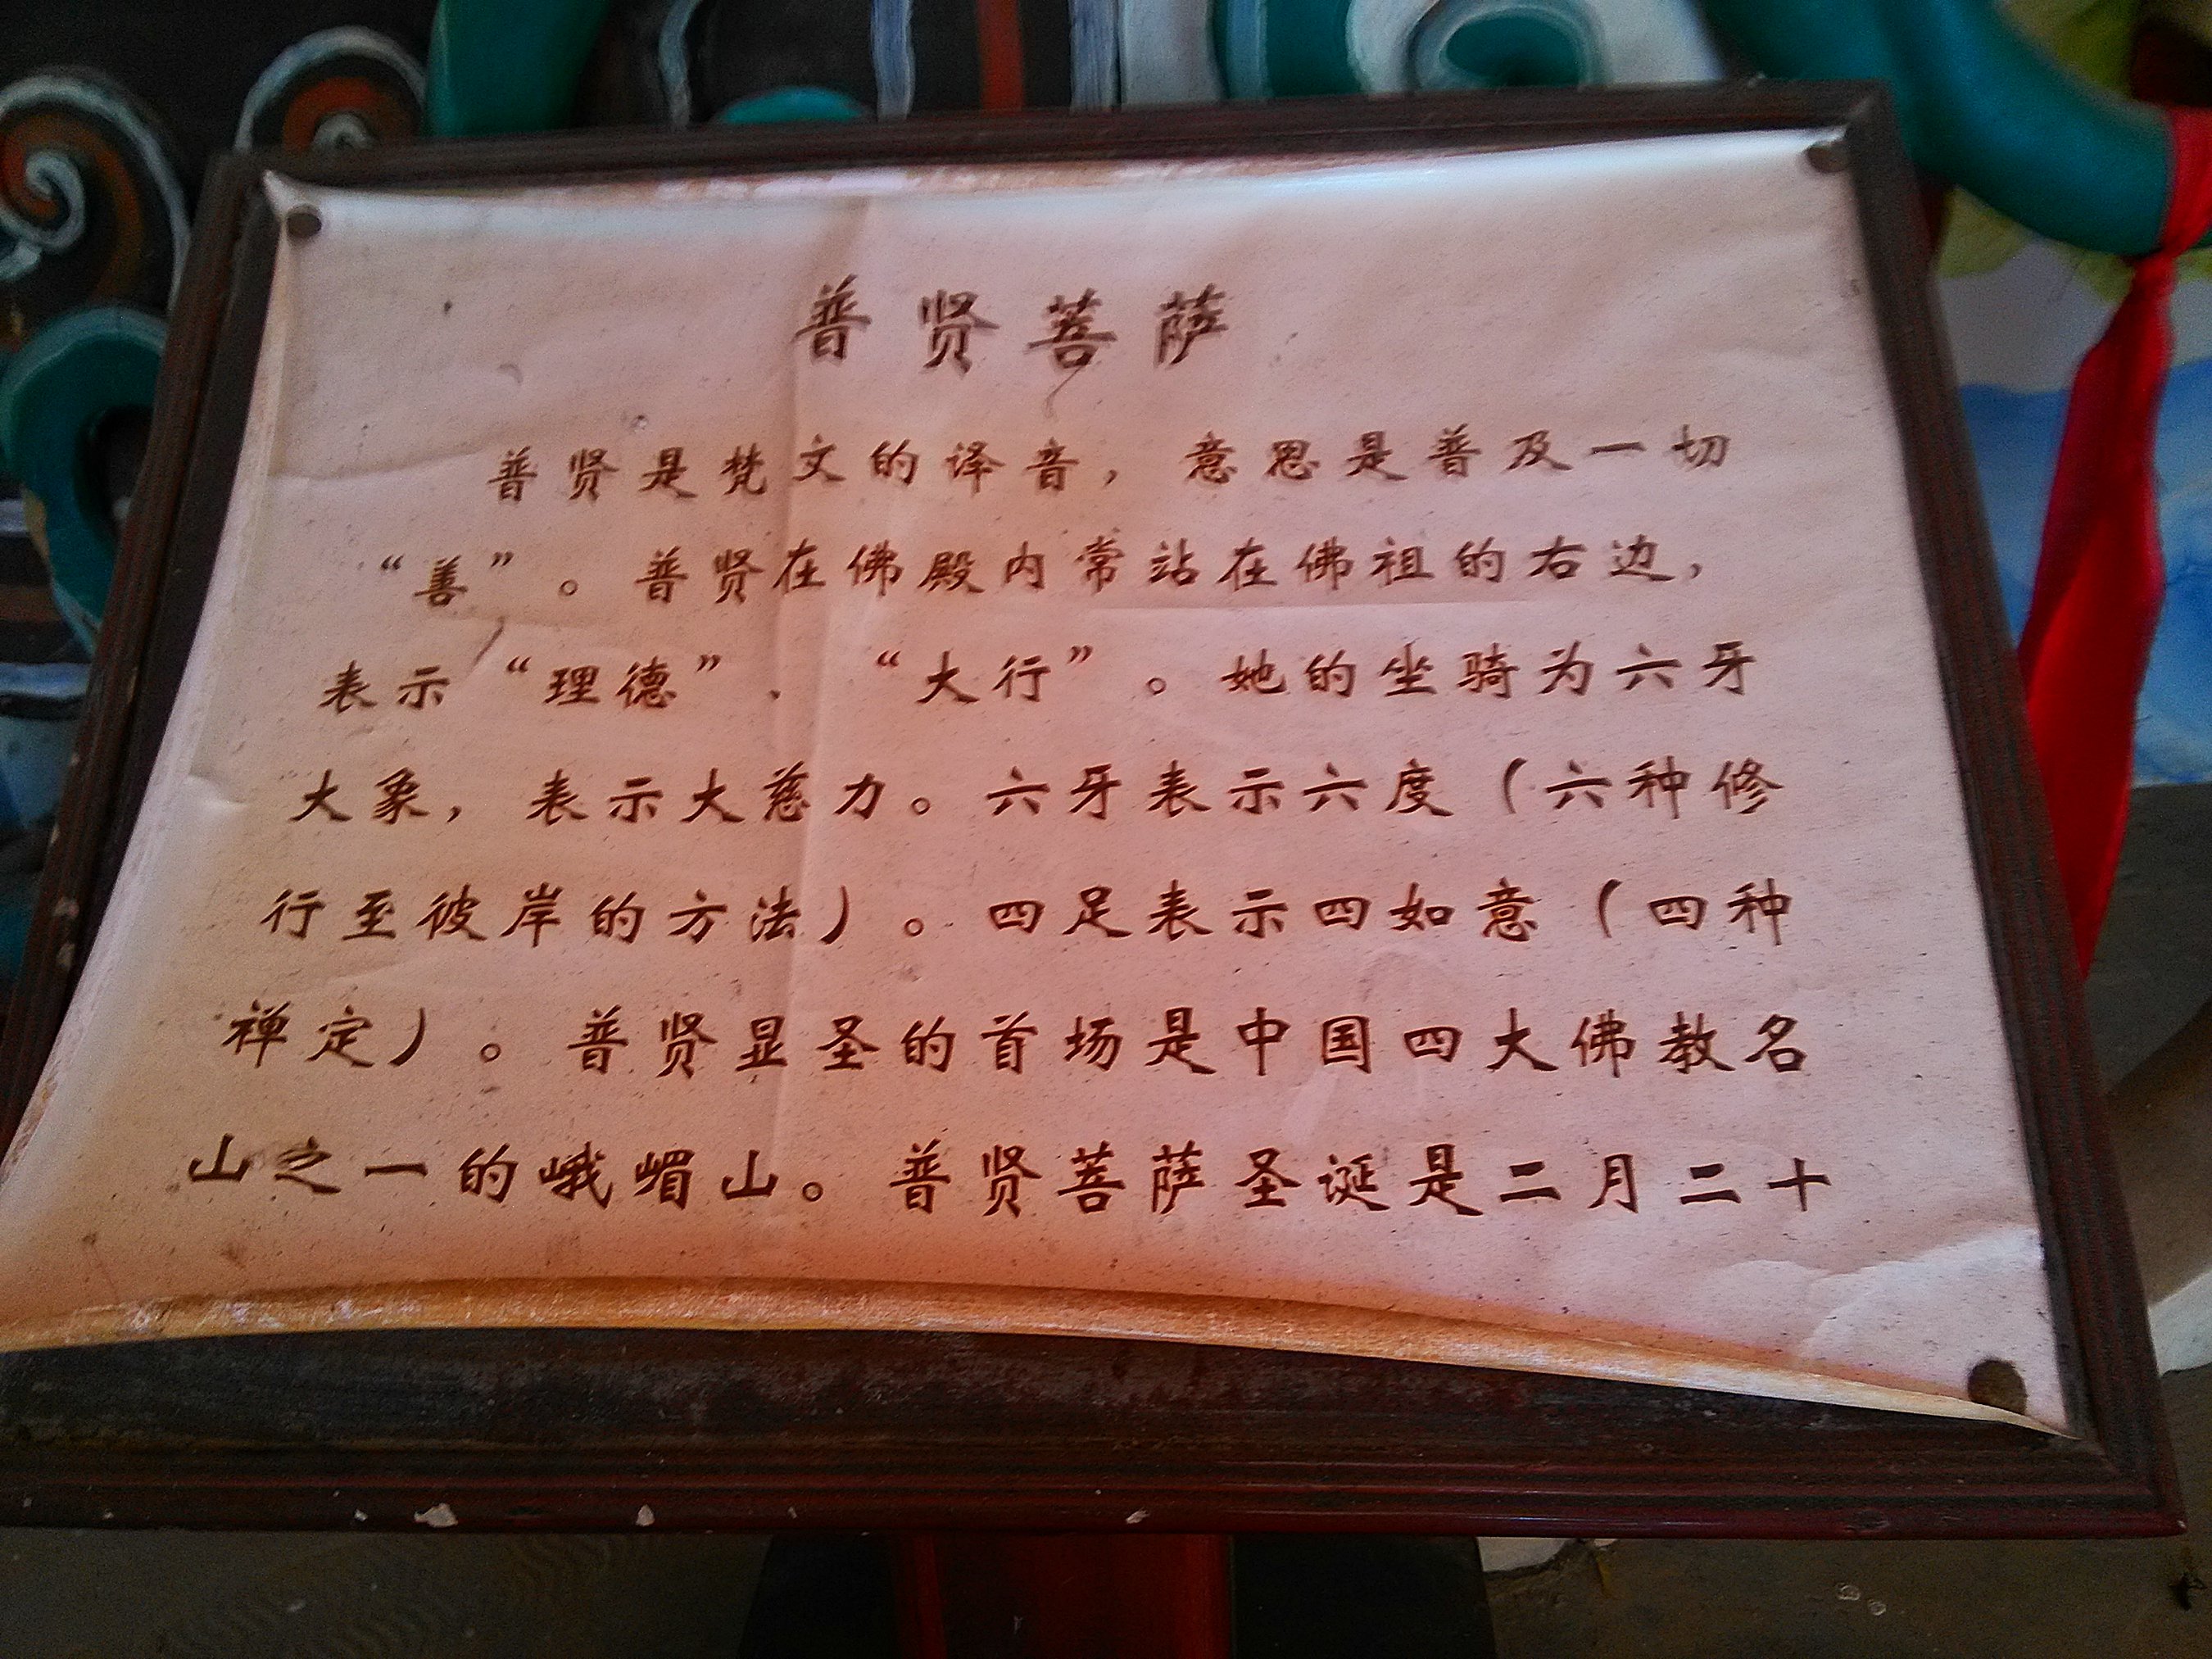 普贤菩萨
普贤是梵文的译音，意思是普及一切
“善”。普贤在佛殿内常站在佛祖的右边，
表示“理德”、“大行”。她的坐骑为六牙
大象，表示大慈力。六牙表示六度（六种修
行至彼岸的方法）。四足表示四如意（四种
禅定）。普贤显圣的首场是中国四大佛教名
山之一的峨嵋山。普贤菩萨圣诞是二月二十